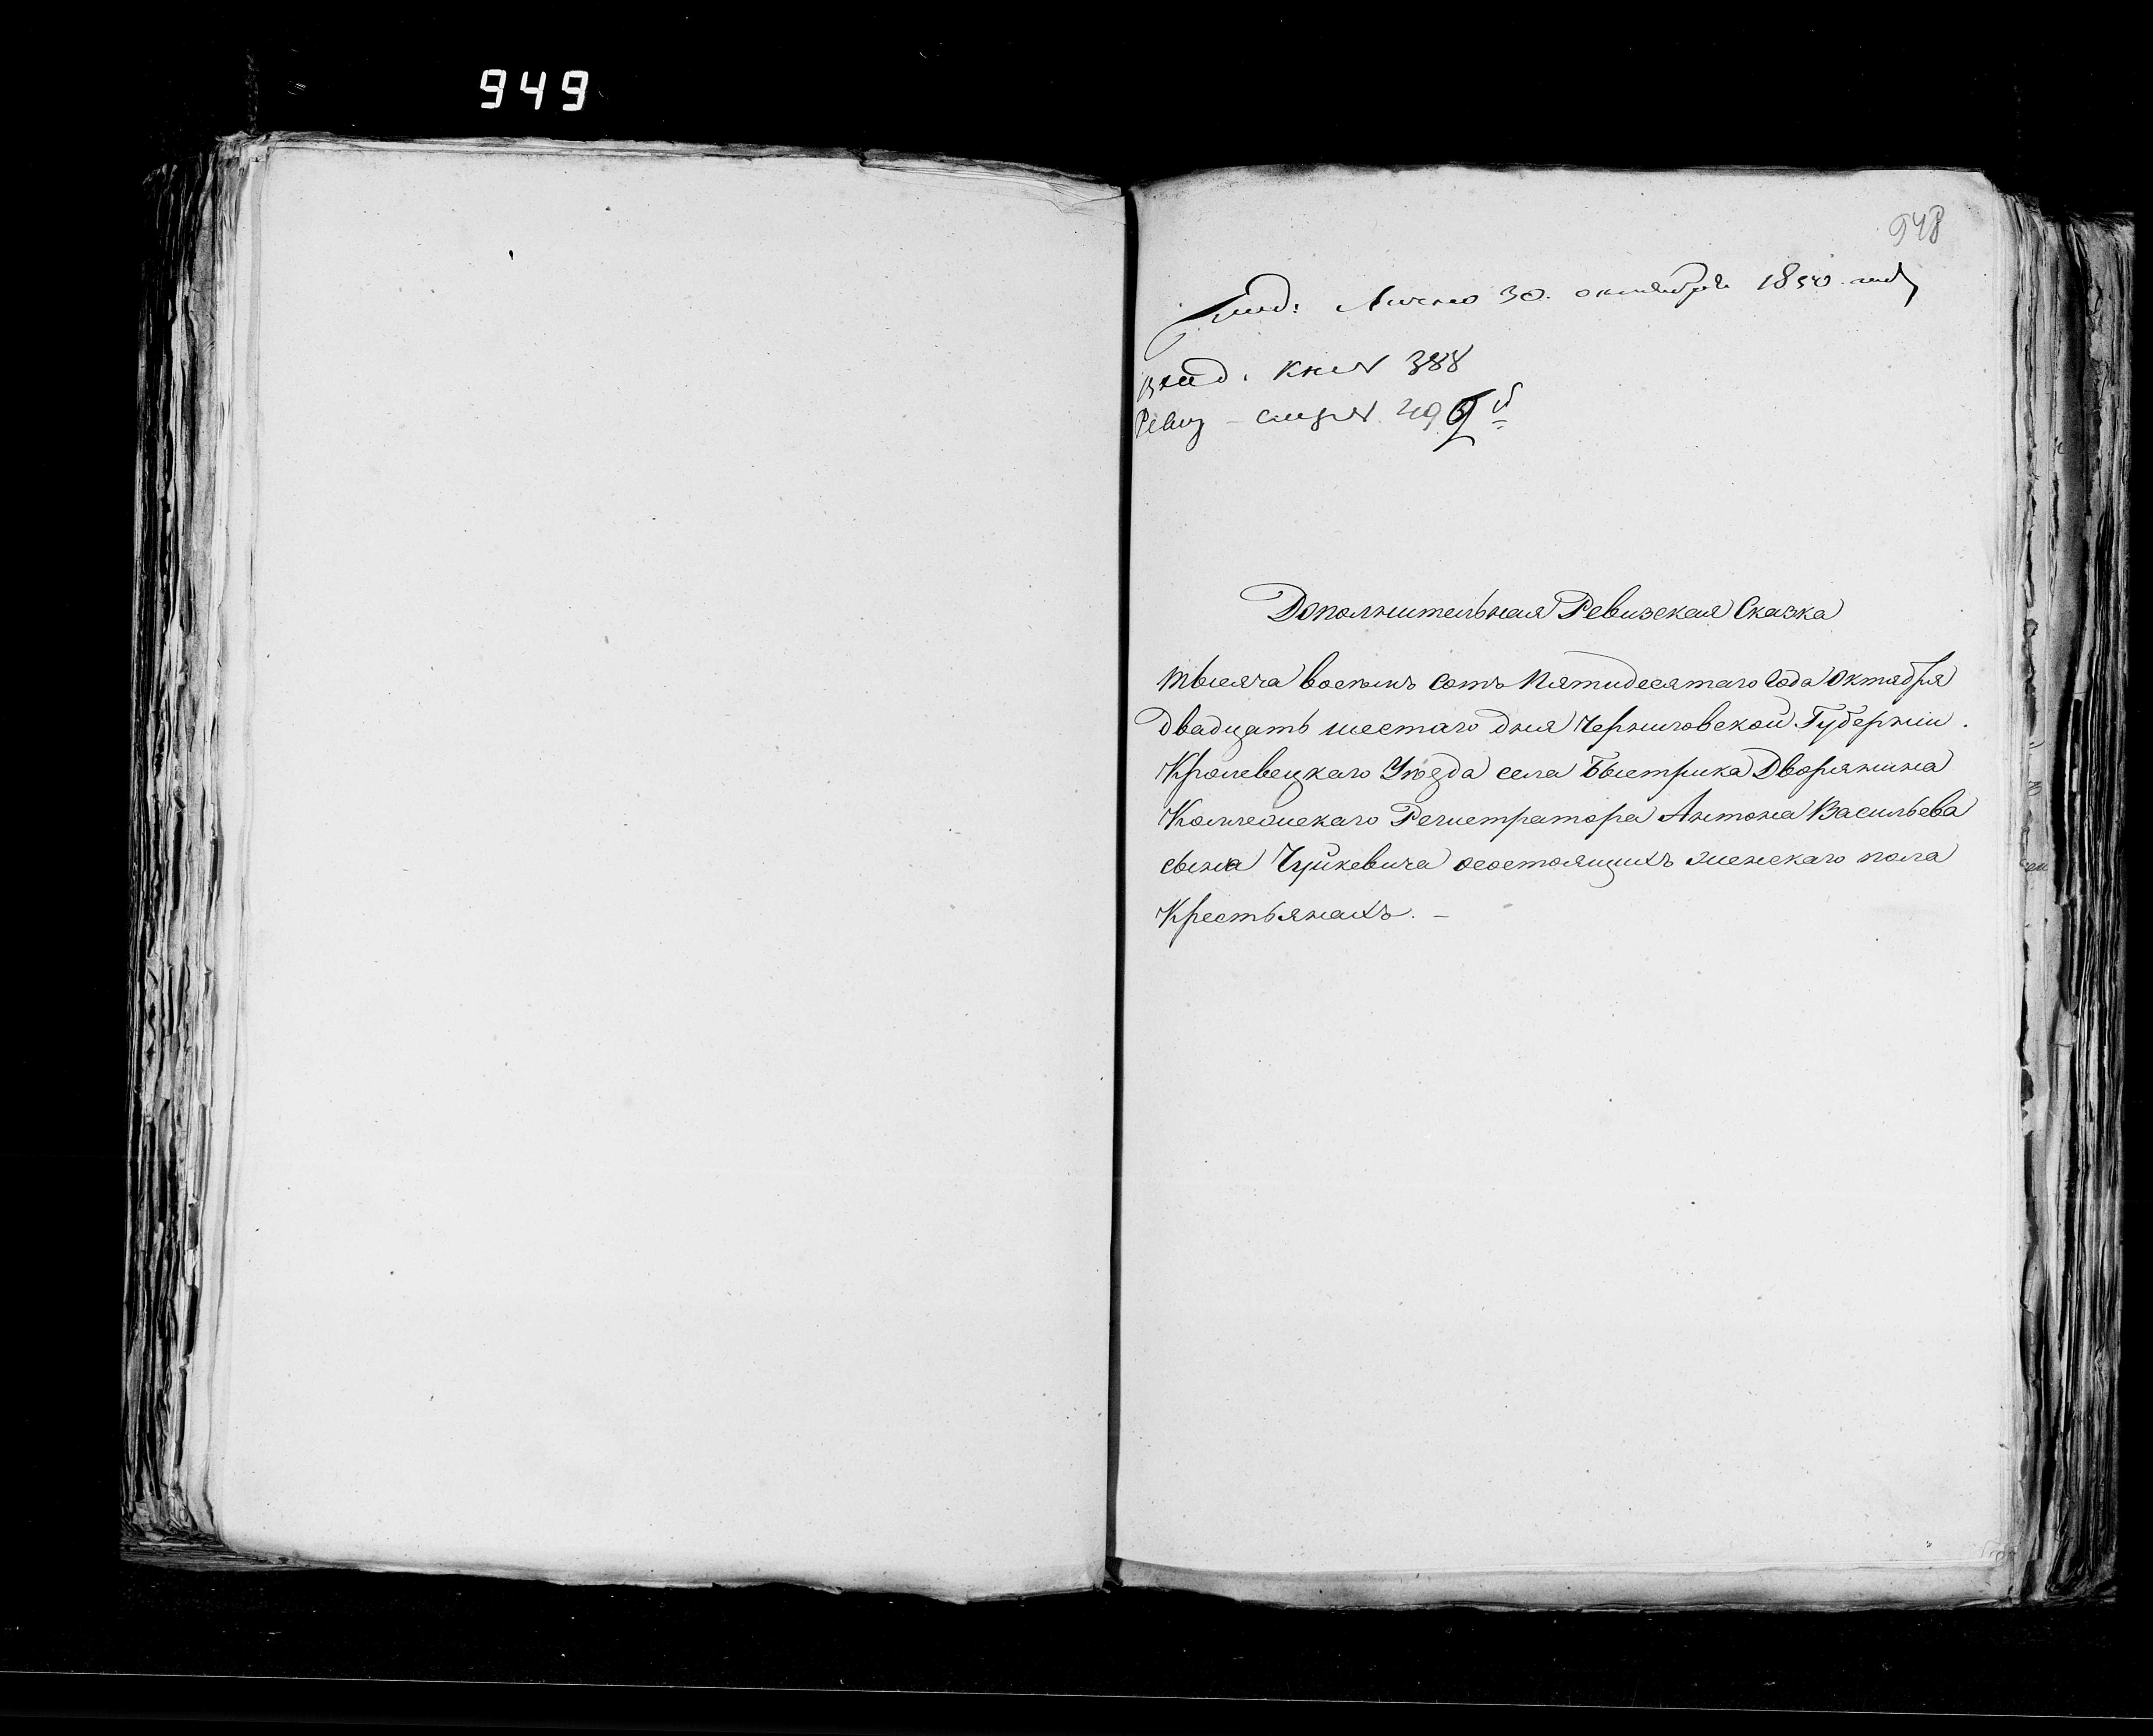 949
948
Лично 30. октября 1850. года
вход. кни № 388
Ревиз
Дополнительная Ревизская Сказка
тысяча восемь сотъ Пятидесятаго Года Октября
Двадцать шестаго дня Черниговской Губернии.
Кролевецкаго Уѣзда села Быстрика Дворянина
Коллежскаго Регистратора Антона Васильева
сына Чуйкевича осостоящихъ женскаго пола
Крестьянахъ. –